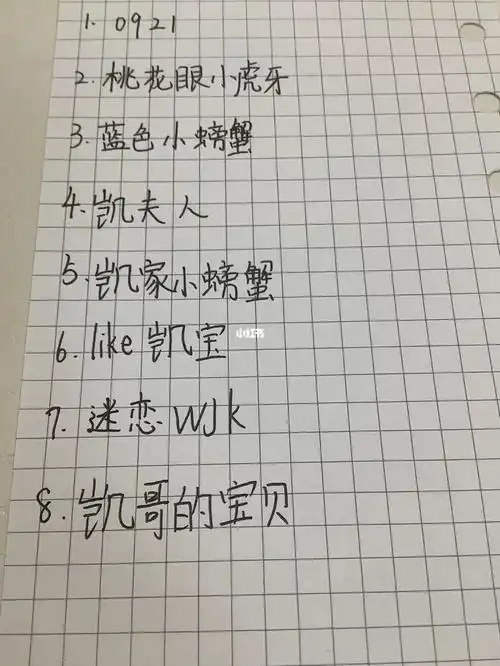 1. 0921
2. 桃花眼小虎牙
3. 蓝色小螃蟹
4. 凯夫人
5. 凯家小螃蟹
6. like 凯宝
小红书
7. 迷恋 WJK
8. 凯哥的宝贝